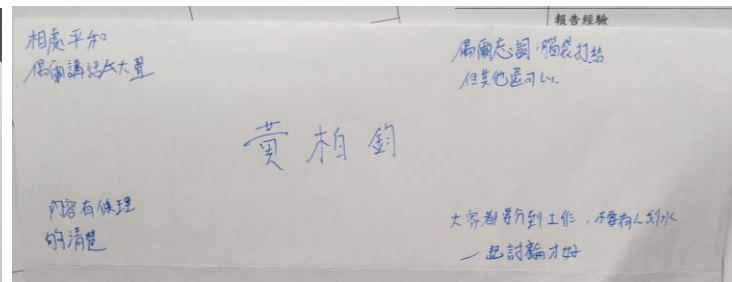 報告經驗
相處平和
偶爾講話太大聲
偶爾忘詞,腦袋打結
但其他還可以
黃柏鈞
內容有條理
的清楚
大家都要分到工作,不要有人划水
一起討論才好